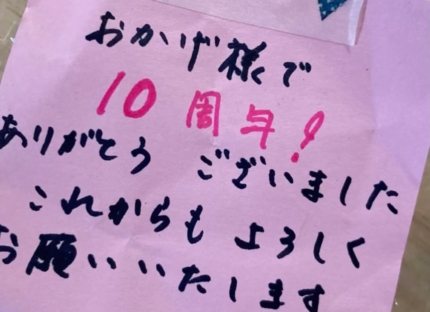 おかげ様で
10周年!
ありがとう ございました
これからも よろしく
お願いいたします